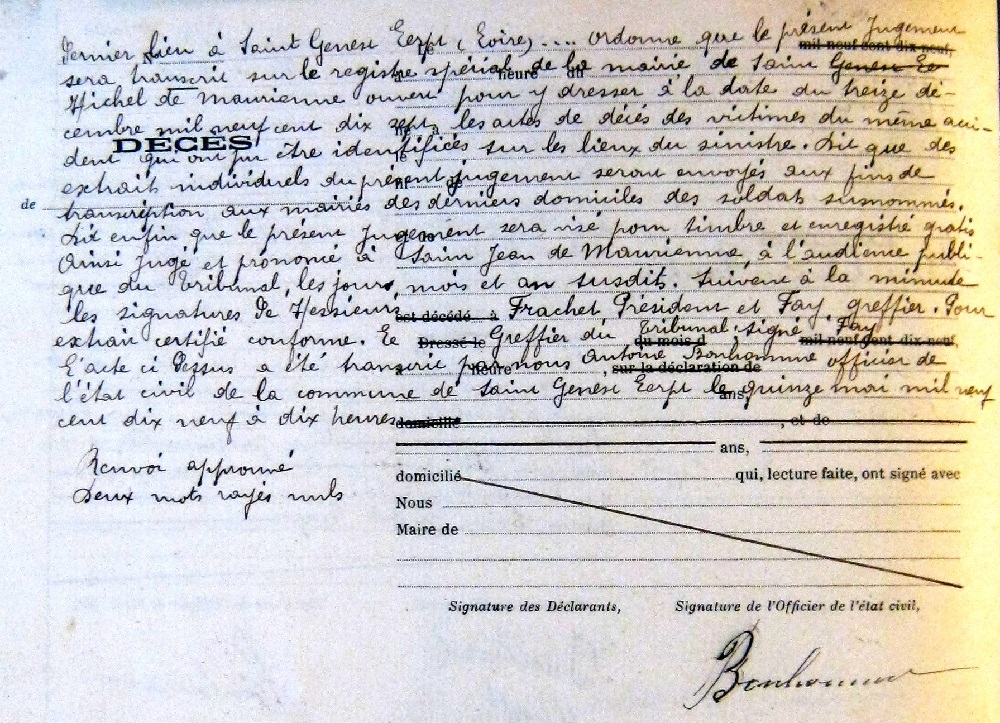 Dernier lieu à Saint Genest Lerpt (Loire) .... ordonne que le présent Jugement
mil neuf cent dix neuf,
sera transcrit sur le registre spécial de la mairie de Saint Genest Le
heure du
Michel de Maurienne ouvert pour y dresser à la date du treize dé-
cembre mil neuf cent dix sept, les actes de décés des victimes du même acci-
DÉCÈS
dent qui ont pu être identifiés sur les lieux du sinistre. Dit que des
extraits individuels du présent jugement seront envoyés aux fins de
de
transcription aux mairies des derniers domiciles des soldats susnommés.
Dit enfin que le présent Jugement sera visé pour timbre et enregistré gratis
Ainsi Jugé et prononcé à Saint Jean de Maurienne, à l'audience publi-
que du Tribunal, les jour, mois et an susdit. Suivent à la minute
les signatures de Messieurs Frachet Président et Fay, greffier. Pour
est décédé à
extrait certifié conforme. Le Greffier du Tribunal signé Fay
Dressé le du mois d mil neuf cent dix neuf,
L'acte ci dessus a été transcrit par nous Antoine Bonhomme officier de
heure , sur la déclaration de
l'état civil de la commune de Saint Genest Lerpt le quinze mai mil neuf
ans,
cent dix neuf à dix heures
domicilié , et de
ans,
Renvoi approuvé
domicilié qui, lecture faite, ont signé avec
Deux mots rayés nuls
Nous
Maire de
Signature des Déclarants, Signature de l'Officier de l'état civil,
Bonhomme